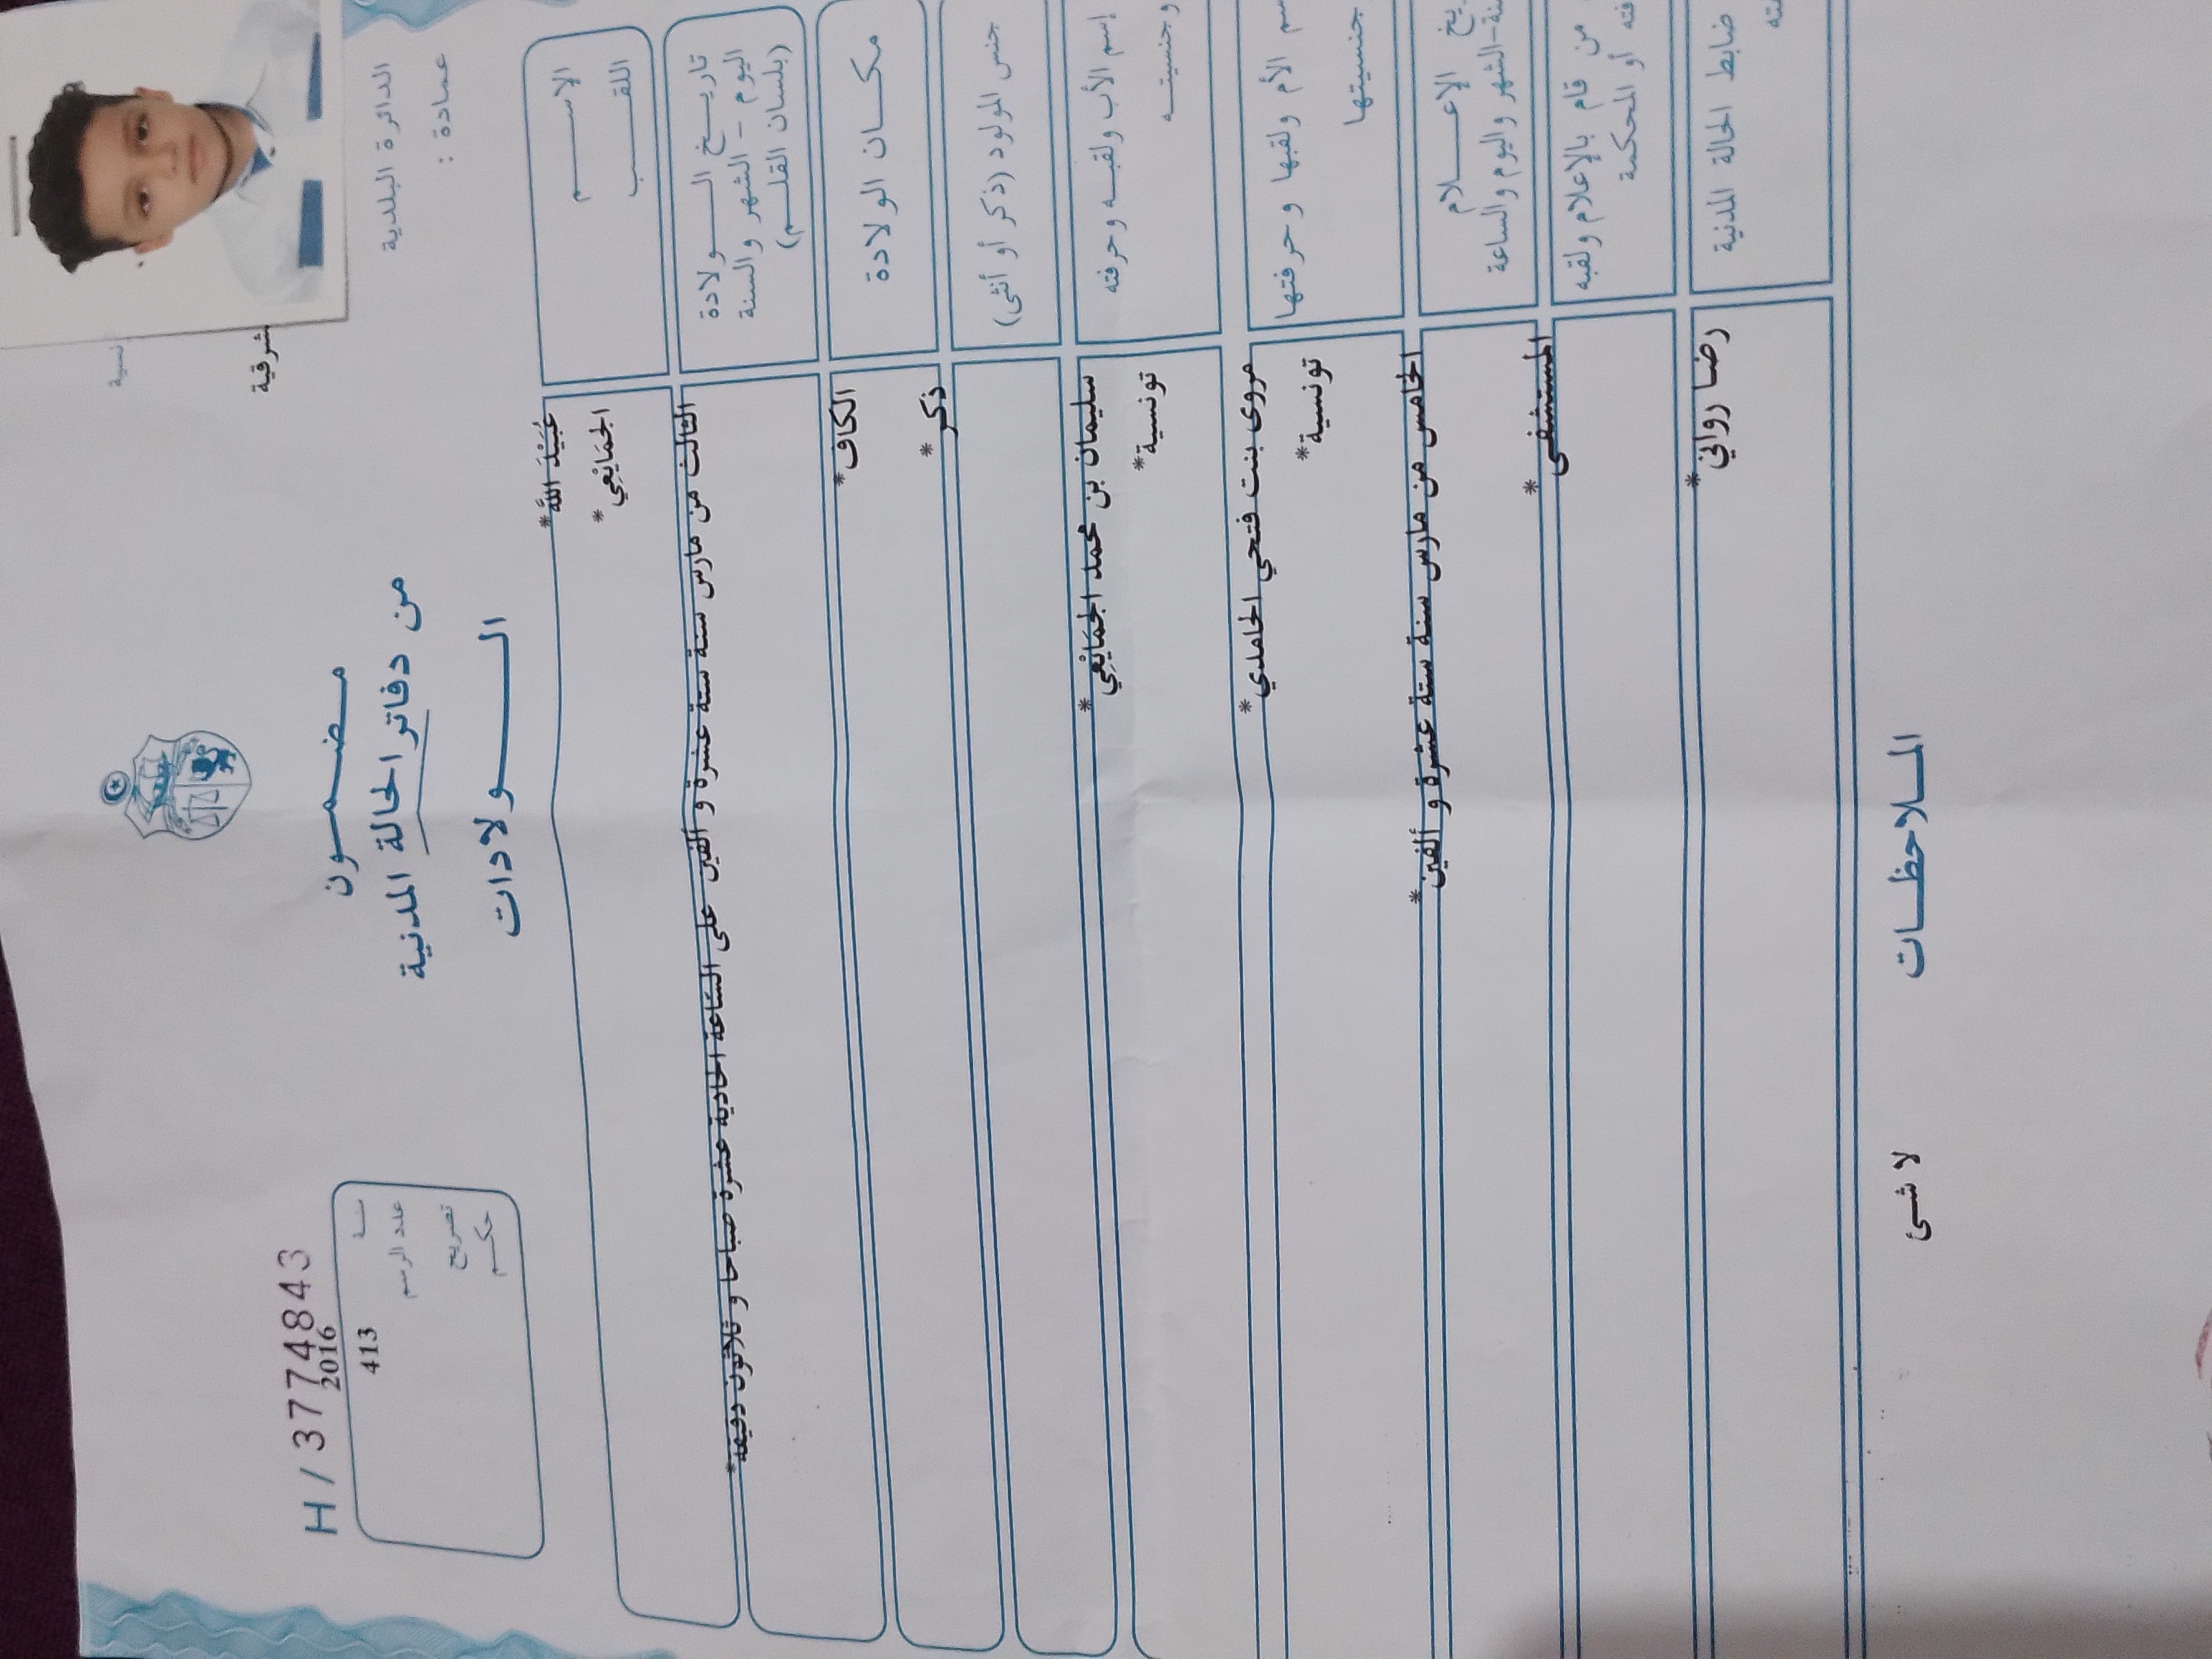 H / 3774843
2016
سنة
413
عدد الرسم
تصريح
حكم
مضمون
من دفاتر الحالة المدنية
الولادات
شرقية
الدائرة البلدية
عمادة :
الاسم
عُبَيْدَ اللّه*
اللقب
الجمَايْعِي*
تاريخ الولادة
اليوم - الشهر والسنة
(بلسان القلم)
الثالث من مارس سنة ستة عشرة و ألفين على الساعة الحادية عشرة صباحا و ثلاثون دقيقة*
مكان الولادة
الكاف*
جنس المولود (ذكر أو أنثى)
ذكر*
إسم الأب ولقبه وحرفته
سليمان بن محمد الجمَايْعِي*
وجنسيته
تونسية*
الأم ولقبها وحرفتها
مروى بنت فتحي الحامدي*
جنسيتها
تونسية*
الإعلام
والشهر واليوم والساعة
الخامس من مارس سنة ستة عشرة و ألفين*
من قام بالإعلام ولقبه
أو المحكمة
المستشفى*
ضابط الحالة المدنية
رضا رواني*
الملاحظات
لا شئ